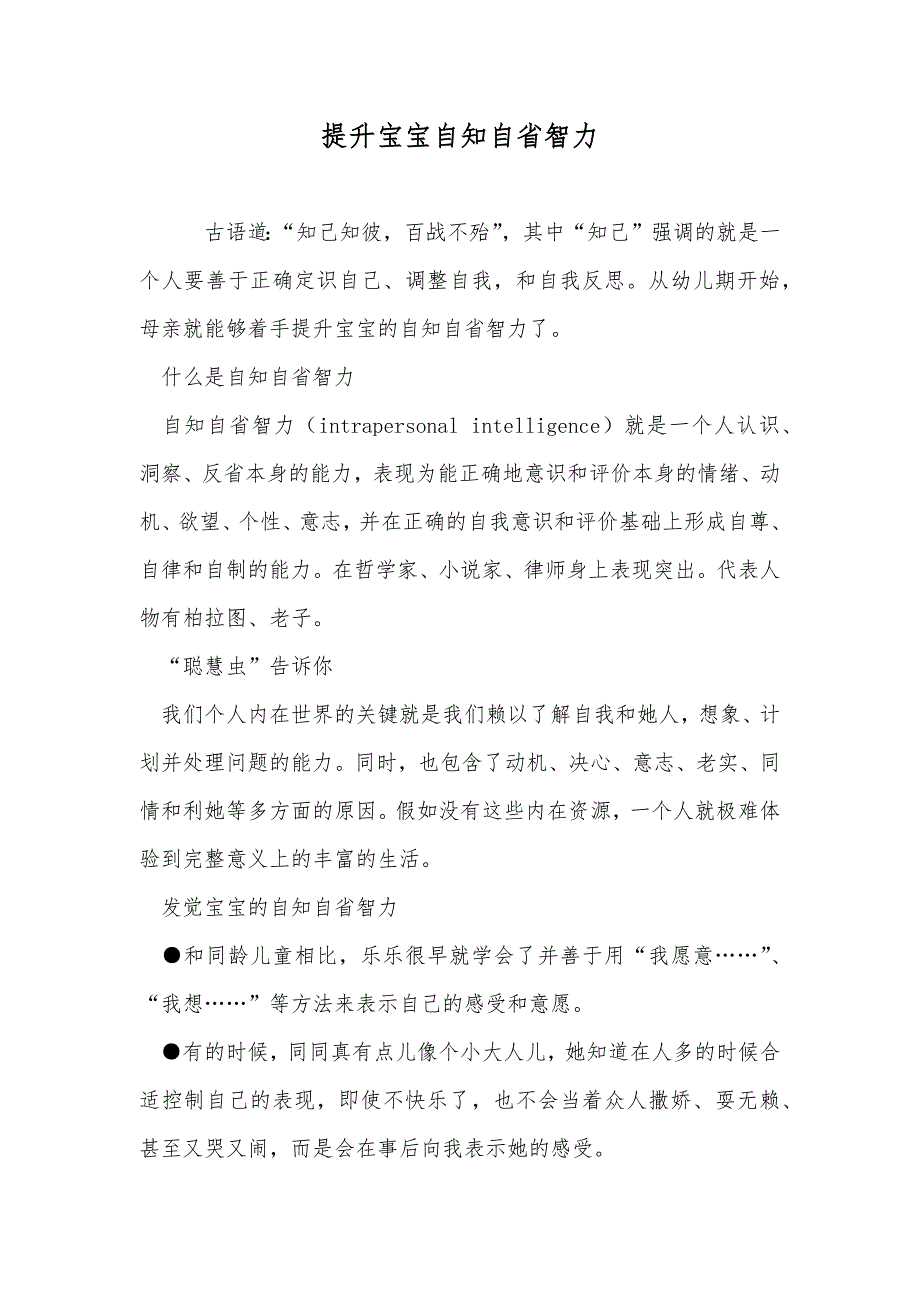 提升宝宝自知自省智力
古语道：“知己知彼，百战不殆”，其中“知己”强调的就是一
个人要善于正确定识自己、调整自我，和自我反思。从幼儿期开始，
母亲就能够着手提升宝宝的自知自省智力了。
什么是自知自省智力
自知自省智力（intrapersonal intelligence）就是一个人认识、
洞察、反省本身的能力，表现为能正确地意识和评价本身的情绪、动
机、欲望、个性、意志，并在正确的自我意识和评价基础上形成自尊、
自律和自制的能力。在哲学家、小说家、律师身上表现突出。代表人
物有柏拉图、老子。
“聪慧虫”告诉你
我们个人内在世界的关键就是我们赖以了解自我和她人，想象、计
划并处理问题的能力。同时，也包含了动机、决心、意志、老实、同
情和利她等多方面的原因。假如没有这些内在资源，一个人就极难体
验到完整意义上的丰富的生活。
发觉宝宝的自知自省智力
●和同龄儿童相比，乐乐很早就学会了并善于用“我愿意……”、
“我想……”等方法来表示自己的感受和意愿。
●有的时候，同同真有点儿像个小大人儿，她知道在人多的时候合
适控制自己的表现，即使不快乐了，也不会当着众人撒娇、耍无赖、
甚至又哭又闹，而是会在事后向我表示她的感受。